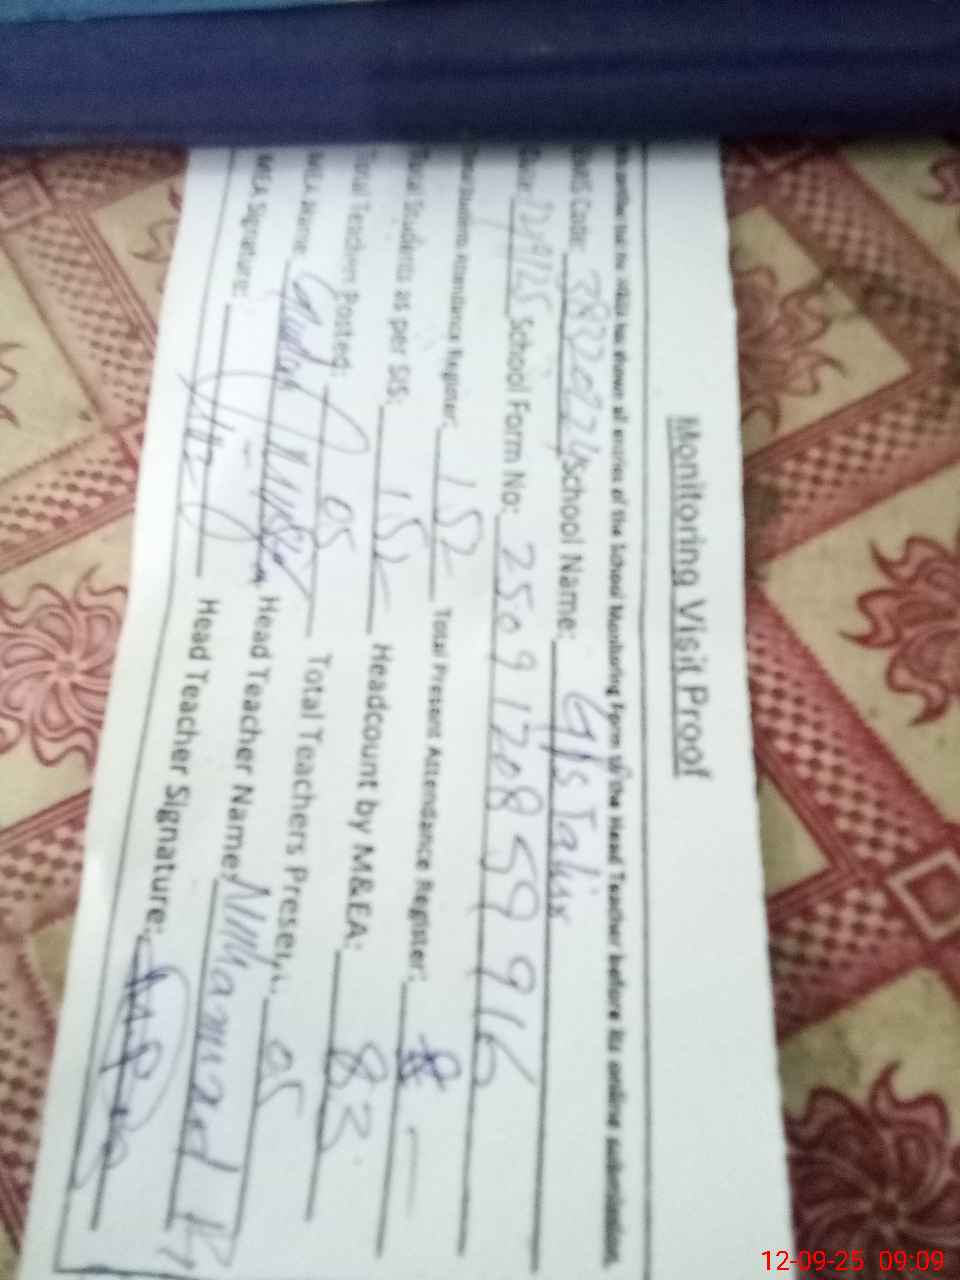 Monitoring Visit Proof
has shown all entries of the School Monitoring Form to the Head Teacher before its online submission.
Code: School Name: GPS
Date: 12/9/25 School Form No: 2509120859916
Total Students Attendance Register: 152 Total Present Attendance Register:
Total Students as per SIS: 152 Headcount by M&EA: 83
Total Teachers Posted: 05 Total Teachers Present: 05
MEA Name: Head Teacher Name: Muhammad
MEA Signature: Head Teacher Signature:
12-09-25 09:09